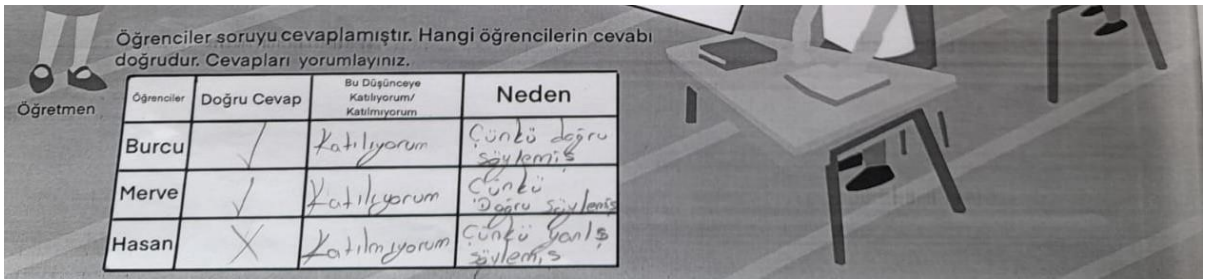 Öğrenciler soruyu cevaplamıştır. Hangi öğrencilerin cevabı
doğrudur. Cevapları yorumlayınız.
Öğretmen
Öğrenciler Doğru Cevap Bu Düşünceye Katılıyorum/ Katılmıyorum Neden
Burcu ✓ Katılıyorum Çünkü doğru söylemiş
Merve ✓ Katılıyorum Çünkü Doğru söylemiş
Hasan X Katılmıyorum Çünkü yanlş söylemiş